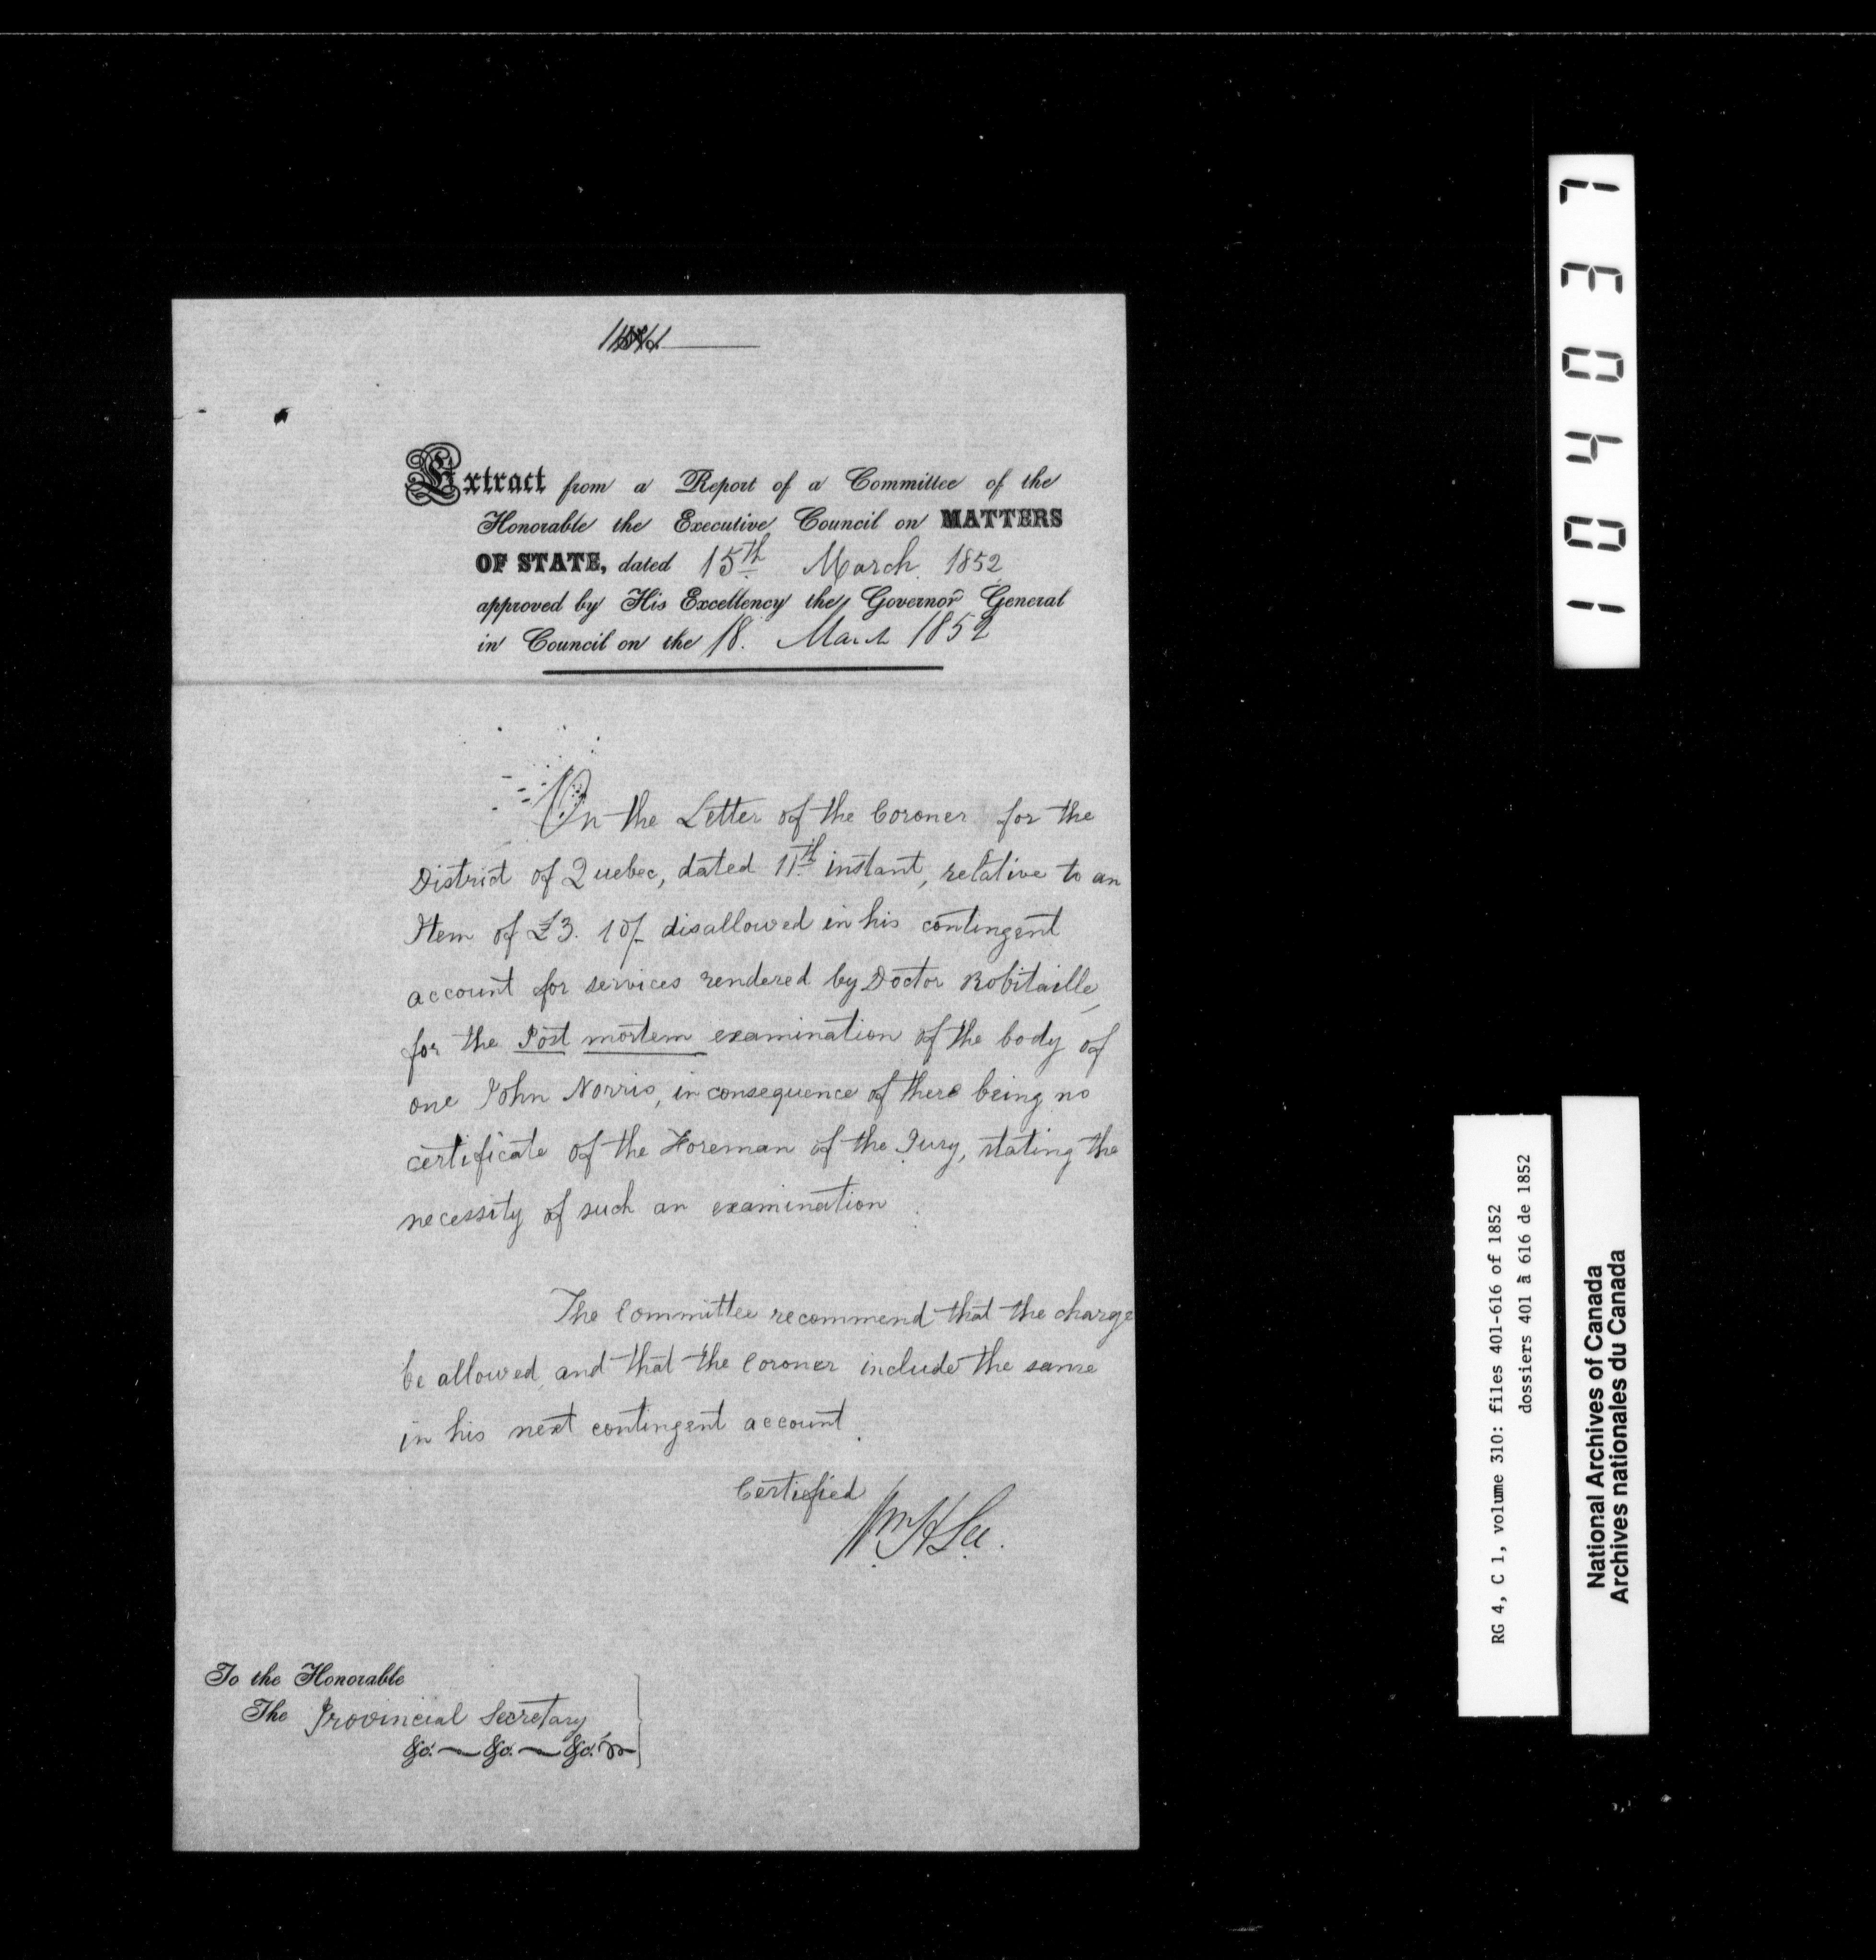 Extract from a Report of a Committee of the
Honorable the Executive Council on MATTERS
OF STATE, dated 15th March 1852
approved by His Excellency the Governor General
in Council on the 18. March 1852
On the Letter of the Coroner for the
District of Quebec, dated 11th instant, relative to an
Item of £3. 10/- disallowed in his contingent
account for services rendered by Doctor Robitaille,
for the Post mortem examination of the body of
one John Norris, in consequence of there being no
certificate of the Foreman of the Jury, stating the
necessity of such an examination.
The Committee recommend that the charge
be allowed, and that the Coroner include the same
in his next contingent account.
Certified
Wm H Lee.
To the Honorable
The Provincial Secretary
&c. &c. &c.
104037
RG 4, C 1, volume 310: files 401-616 of 1852
dossiers 401 à 616 de 1852
National Archives of Canada
Archives nationales du Canada